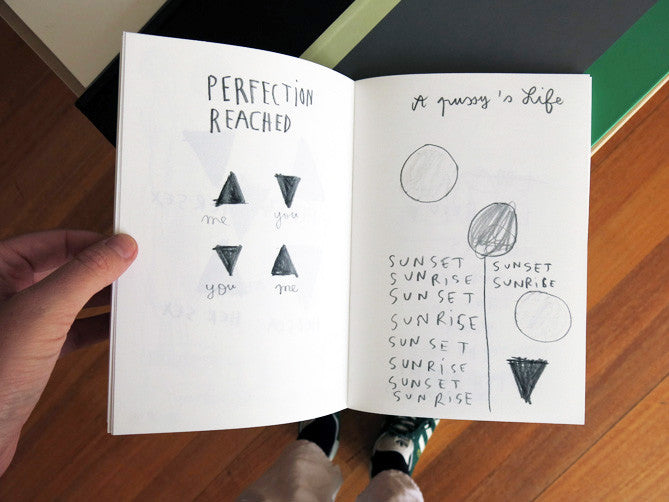 PERFECTION
REACHED
me you
you me
A pussy's Life
SUNSET
SUNRISE
SUNSET
SUNRISE
SUNSET
SUNRISE
SUNSET
SUNRISE
SUNSET
SUNRISE